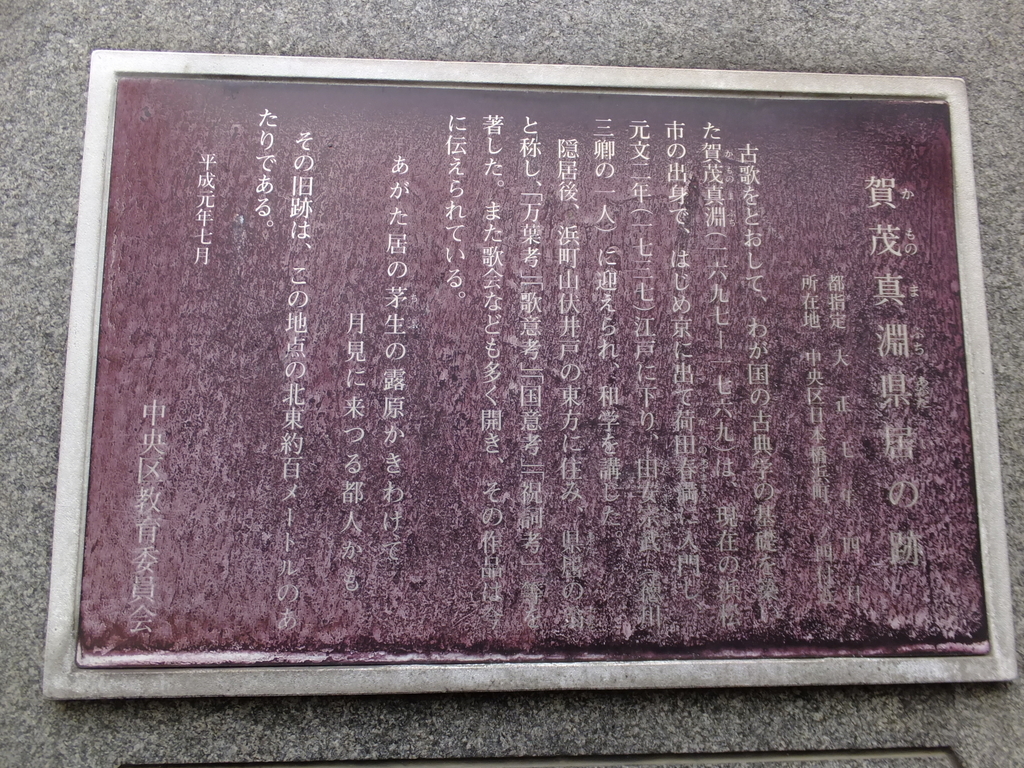 賀茂真淵県居の跡
都指定 大正七年四月
所在地 中央区日本橋浜町
古歌をとおして、わが国の古典学の基礎を築い
た賀茂真淵(一六九七―一七六九)は、現在の浜松
市の出身で、はじめ京に出て荷田春満に入門し
元文二年(一七三七)江戸に下り、田安宗武(徳川
三卿の一人)に迎えられ、和学を講じた。
隠居後、浜町山伏井戸の東方に住み、県居の
と称し、『万葉考』『歌意考』『国意考』『祝詞考』等を
著した。また歌会なども多く開き、その作品は
に伝えられている。
あがた居の茅生の露原かきわけて
月見に来つる都人かも
その旧跡は、この地点の北東約百メートルのあ
たりである。
平成元年七月
中央区教育委員会